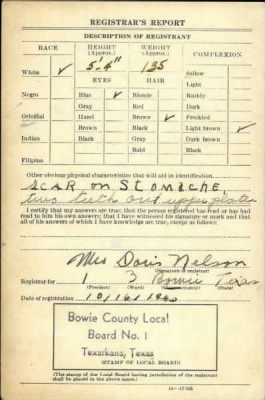 REGISTRAR'S REPORT
DESCRIPTION OF REGISTRANT
RACE HEIGHT (Approx.) WEIGHT (Approx.) COMPLEXION
5-4" 135
White ✓ Sallow
EYES HAIR Light
Negro Blue ✓ Blonde Ruddy
Gray Red Dark
Oriental Hazel Brown ✓ Freckled
Brown Black Light brown ✓
Indian Black Gray Dark brown
Bald Black
Filipino
Other obvious physical characteristics that will aid in identification
SCAR on STOMACHE,
two teeth out upper plate
I certify that my answers are true; that the person registered has read or has had
read to him his own answers; that I have witnessed his signature or mark and that
all of his answers of which I have knowledge are true, except as follows:
Mrs Doris Nelson
(Signature of registrar)
Registrar for 1 3 Bowie Texas
(Precinct) (Ward) (State)
Date of registration 10/16/1940
Bowie County Local
Board No. 1
Texarkana, Texas
(STAMP OF LOCAL BOARD)
(The stamp of the Local Board having jurisdiction of the registrant
shall be placed in the above space.)